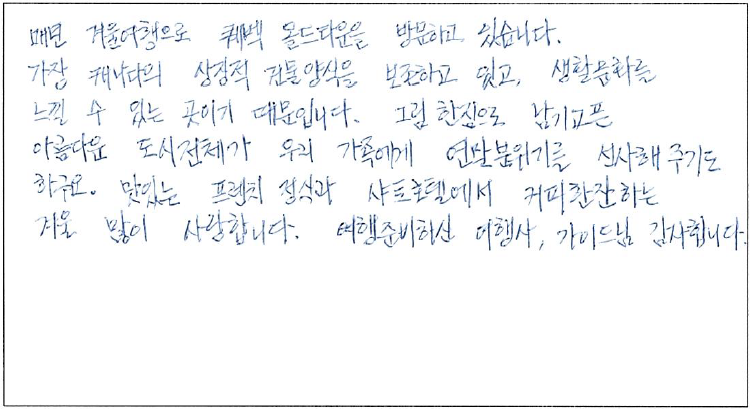 매년 겨울여행으로 퀘벡 올드타운을 방문하고 있습니다.
가장 캐나다의 상징적 건물양식을 보존하고 있고, 생활문화를
느낄 수 있는 곳이기 때문입니다. 그림 한점으로 남기고픈
아름다운 도시전체가 우리 가족에게 연말분위기를 선사해 주기도
하구요. 맛있는 프렌치 정식과 샤또호텔에서 커피한잔하는
겨울 많이 사랑합니다. 여행준비하신 여행사, 가이드님 감사합니다.